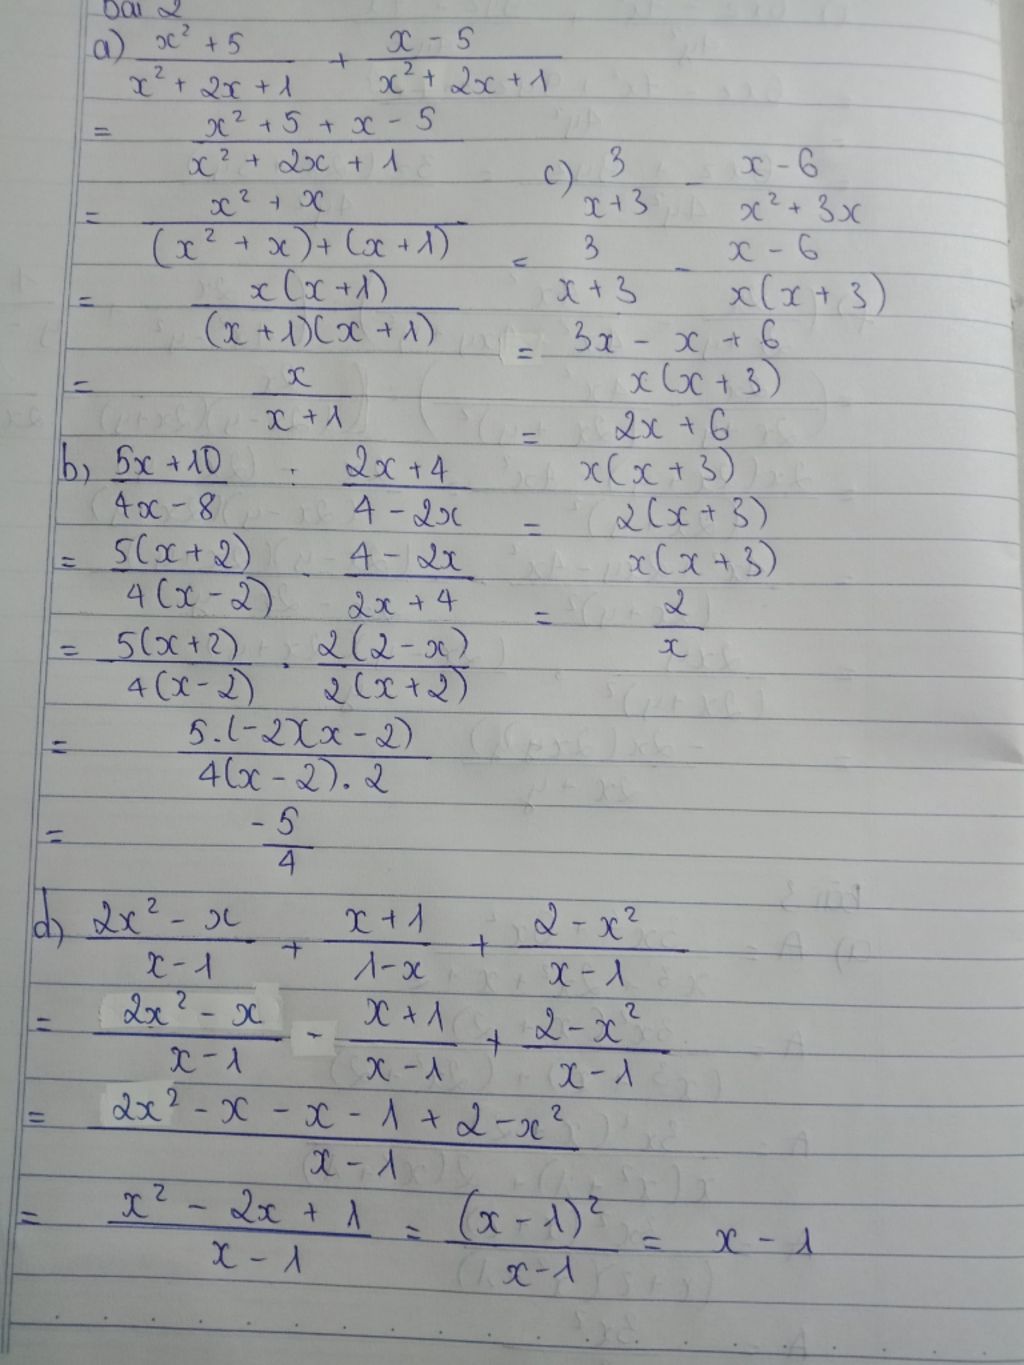 Bài 2
a) x² + 5 / x² + 2x + 1 + x - 5 / x² + 2x + 1
= x² + 5 + x - 5 / x² + 2x + 1
= x² + x / (x² + x) + (x + 1)
= x(x + 1) / (x + 1)(x + 1)
= x / x + 1
b) 5x + 10 / 4x - 8 : 2x + 4 / 4 - 2x
= 5(x + 2) / 4(x - 2) . 4 - 2x / 2x + 4
= 5(x + 2) / 4(x - 2) . 2(2 - x) / 2(x + 2)
= 5.(-2)(x - 2) / 4(x - 2). 2
= -5 / 4
c) 3 / x + 3 - x - 6 / x² + 3x
= 3 / x + 3 - x - 6 / x(x + 3)
= 3x - x + 6 / x(x + 3)
= 2x + 6 / x(x + 3)
= 2(x + 3) / x(x + 3)
= 2 / x
d) 2x² - x / x - 1 + x + 1 / 1 - x + 2 - x² / x - 1
= 2x² - x / x - 1 - x + 1 / x - 1 + 2 - x² / x - 1
= 2x² - x - x - 1 + 2 - x² / x - 1
= x² - 2x + 1 / x - 1 = (x - 1)² / x - 1 = x - 1